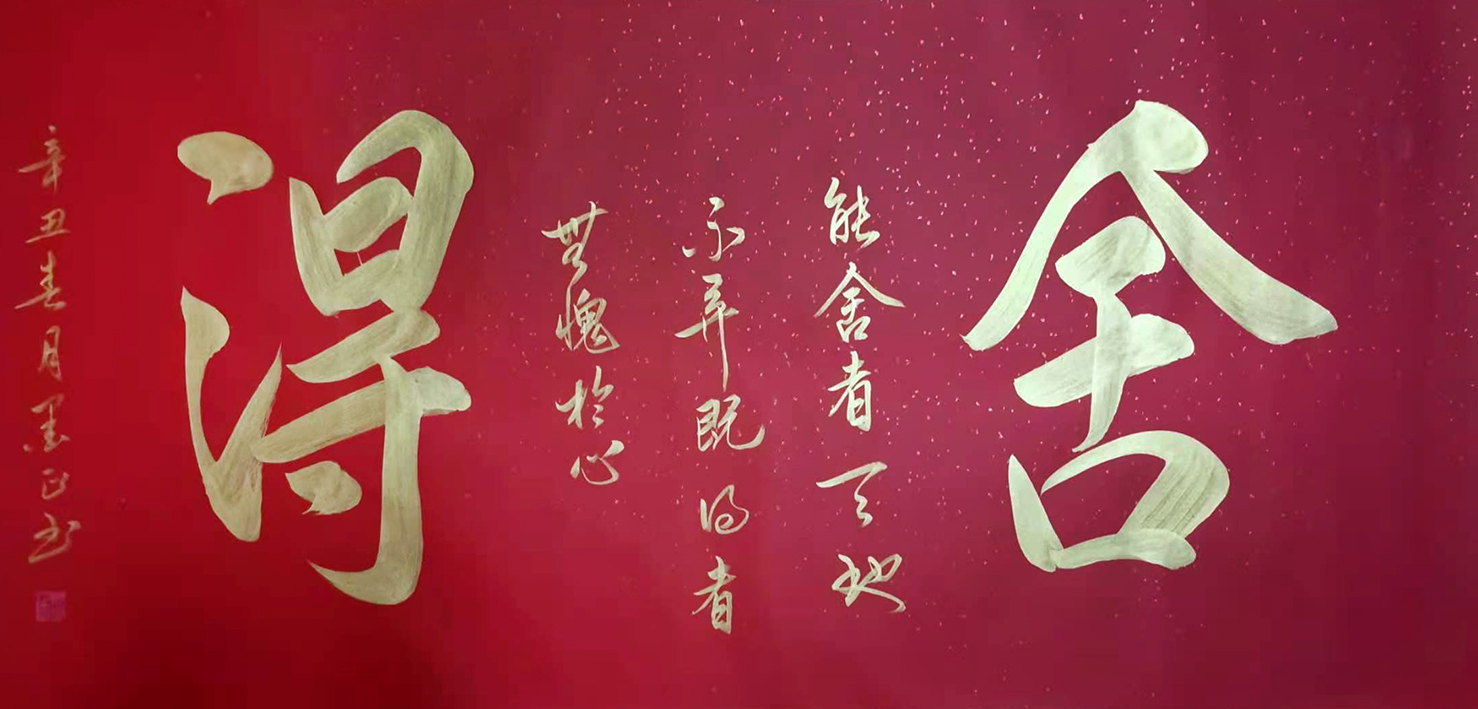 舍
能舍者天地
不弃既得者
無愧於心
得
辛丑春月墨正书